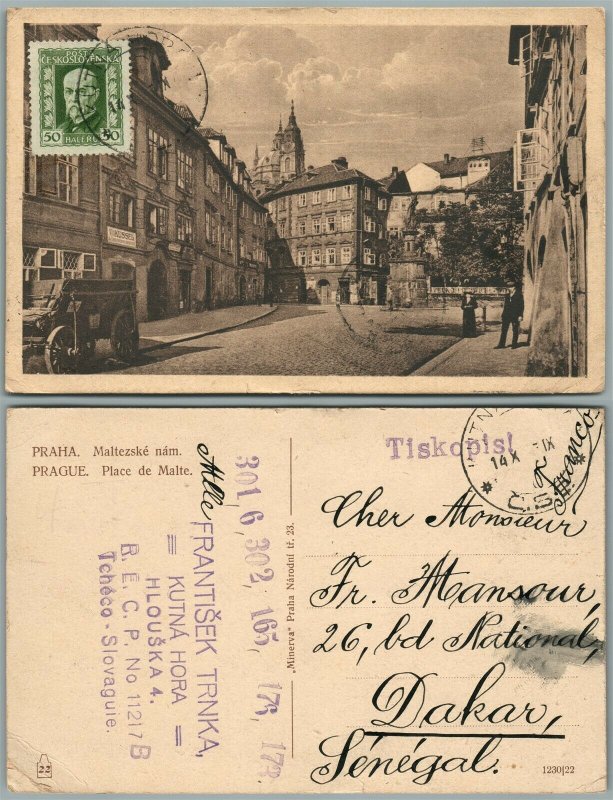 POSTA
ČESKOSLOVENSKÁ
50 50
HALÉŘŮ
PRAHA. Maltezské nám.
PRAGUE. Place de Malte.
Tiskopis!
14 X
IX
Č.S.
Franco
Cher Monsieur
Fr. Mansour,
26, bd National,
Dakar,
Sénégal.
1230|22
"Minerva" Praha Národní tř. 23.
301, 6, 302, 165, 176, 172
FRANTIŠEK TRNKA,
KUTNÁ HORA
HLOUŠKA 4.
B. E. C. P. No 11217 B
Tchéco-Slovaquie.
22